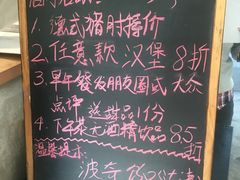 1. 德式猪肘特价
2. 任意款 汉堡 8折
3. 早午餐发朋友圈或大众
点评 送甜品1份
4. 下午茶无酒精饮品85折
温馨提示:
波奇